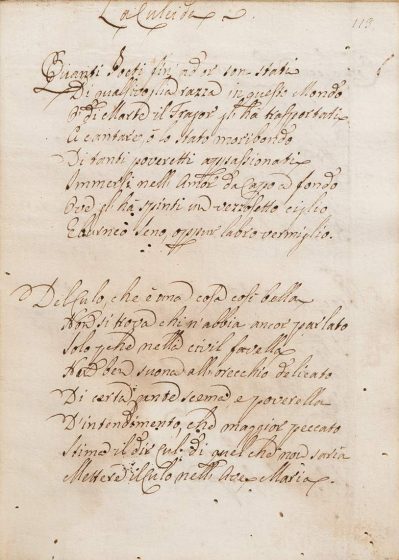 La Culeide
113
Quanti Poeti fin ad or son stati
Di qualsivoglia razza in questo Mondo
O di Marte il fragor gl'ha trasportati
A cantare, o lo stato moribondo
Di tanti poveretti appassionati
Immersi nell Amor da Capo a fondo
Ove gl'ha spinti un vezzosetto ciglio
Eburneo seno, oppur labro vermiglio.
Del Culo, che è una cosa così bella
Non si trova chi n'abbia ancor parlato
Solo pche nella civil favella
Non ben suona all orecchio delicato
Di certa gente scema, e poverella
D'intendimento, che maggior peccato
Stima il dir Cul. di quel che non saria
Mettere il Culo nell Ave Maria.